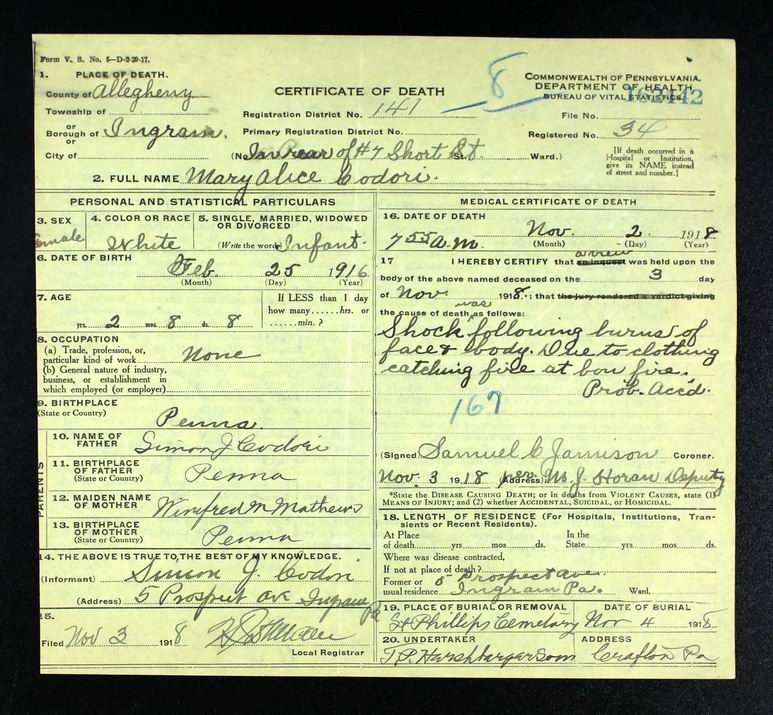 Form V. S. No. 5—D-3-29-17.
1. PLACE OF DEATH.
County of Allegheny
Township of
or
Borough of Ingram.
or
City of
CERTIFICATE OF DEATH
Registration District No. 141
Primary Registration District No.
(No. In rear of #7 Short St. St. Ward.)
8
COMMONWEALTH OF PENNSYLVANIA.
DEPARTMENT OF HEALTH
BUREAU OF VITAL STATISTICS.
File No.
Registered No. 34
[If death occurred in a
Hospital or Institution,
give its NAME instead
of street and number.]
2. FULL NAME Mary Alice Codori.
PERSONAL AND STATISTICAL PARTICULARS
3. SEX
Female
4. COLOR OR RACE
White
5. SINGLE, MARRIED, WIDOWED
OR DIVORCED
(Write the word) Infant.
6. DATE OF BIRTH
Feb. 25 1916
(Month) (Day) (Year)
7. AGE
yrs. 2 mos. 8 ds. 8
If LESS than 1 day
how many......hrs. or
......min.?
8. OCCUPATION
(a) Trade, profession, or
particular kind of work
None
(b) General nature of industry,
business, or establishment in
which employed (or employer)
9. BIRTHPLACE
(State or Country)
Penna.
PARENTS
10. NAME OF
FATHER
Simon J Codori
11. BIRTHPLACE
OF FATHER
(State or Country)
Penna
12. MAIDEN NAME
OF MOTHER
Winifred M Mathews
13. BIRTHPLACE
OF MOTHER
(State or Country)
Penna
14. THE ABOVE IS TRUE TO THE BEST OF MY KNOWLEDGE.
(Informant) Simon J. Codori
(Address) 5 Prospect Ave Ingram Pa
15.
Filed Nov 3 1918
Local Registrar
MEDICAL CERTIFICATE OF DEATH
16. DATE OF DEATH
7 55 a.m. Nov. 2 1918
(Month) (Day) (Year)
17 I HEREBY CERTIFY that an inquest was held upon the
body of the above named deceased on the 3 day
of Nov 1918.: that the jury rendered a verdict giving
the cause of death was as follows:
Shock following burns of
face & body. Due to clothing
catching fire at bon fire.
Prob. Acc'd.
167
(Signed) Samuel C Jamison Coroner.
Nov. 3 1918 (Address) per M. J. Horan Deputy
*State the DISEASE CAUSING DEATH; or in deaths from VIOLENT CAUSES, state (1)
MEANS OF INJURY; and (2) whether ACCIDENTAL, SUICIDAL, OR HOMICIDAL.
18. LENGTH OF RESIDENCE (For Hospitals, Institutions, Tran-
sients or Recent Residents).
At Place
of death......yrs......mos......ds.
In the
State......yrs......mos......ds.
Where was disease contracted,
If not at place of death?
Former or
usual residence
5 Prospect Ave
Ingram Pa. Ward.
19. PLACE OF BURIAL OR REMOVAL
St Phillips Cemetary
DATE OF BURIAL
Nov 4 1918
20. UNDERTAKER
T.P. Harshbarger Sons
ADDRESS
Crafton Pa